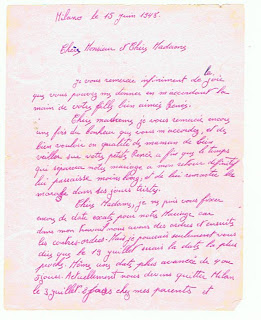 Milano le 15 juin 1948.
Chèr Monsieur et Chèr Madame
je vous remercie infiniment de la joie
que vous pouvez me donner en m'accordant la
main de votre filly bien aimée Renée.
Chèr madame, je vous remercie encore
une fois du bonheur que vous m'accordez, et de
bien vouloir en qualité de maman de bien
veiller sur votre petite Renée a fin que le temps
que separera notre mariage a mon retour definitif
lui parraisse moins long, et de lui remonter la
morale dans ses jours tristes.
Chèr Madame, je ne puis vous fixer
encore de date exate pour notre Mariage car
dans mon travail nous avons des ordres et ensuite
les contres-ordres. Mais je pourrais seulement vous
dire que le 13 juillet serai la date la plus
proche. Même une date plus avancée de 4 ou
5 jours. Actuellement nous devons quitter Milan
le 3 juillet chez mes parents et